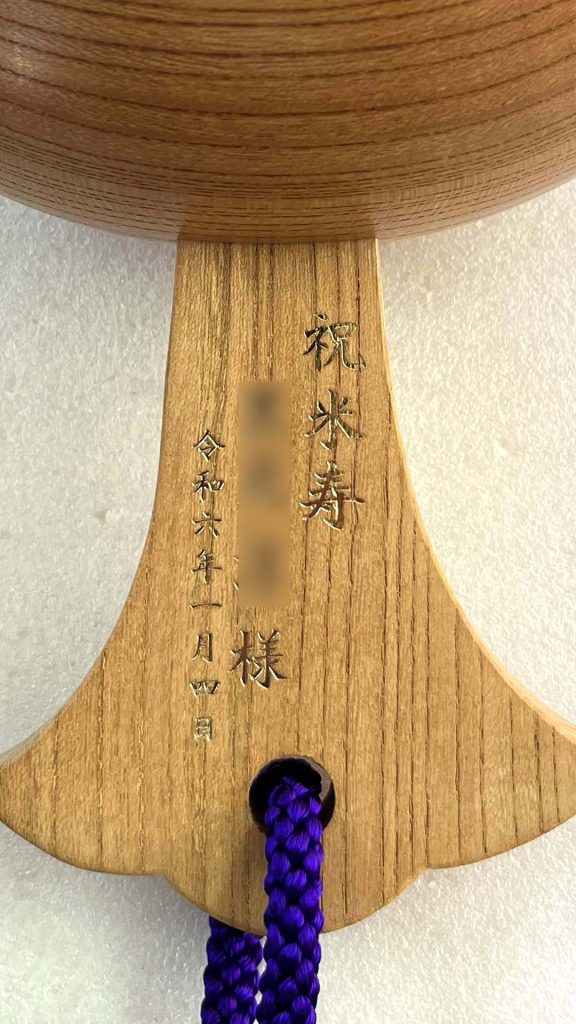 祝米寿
様
令和六年一月四日